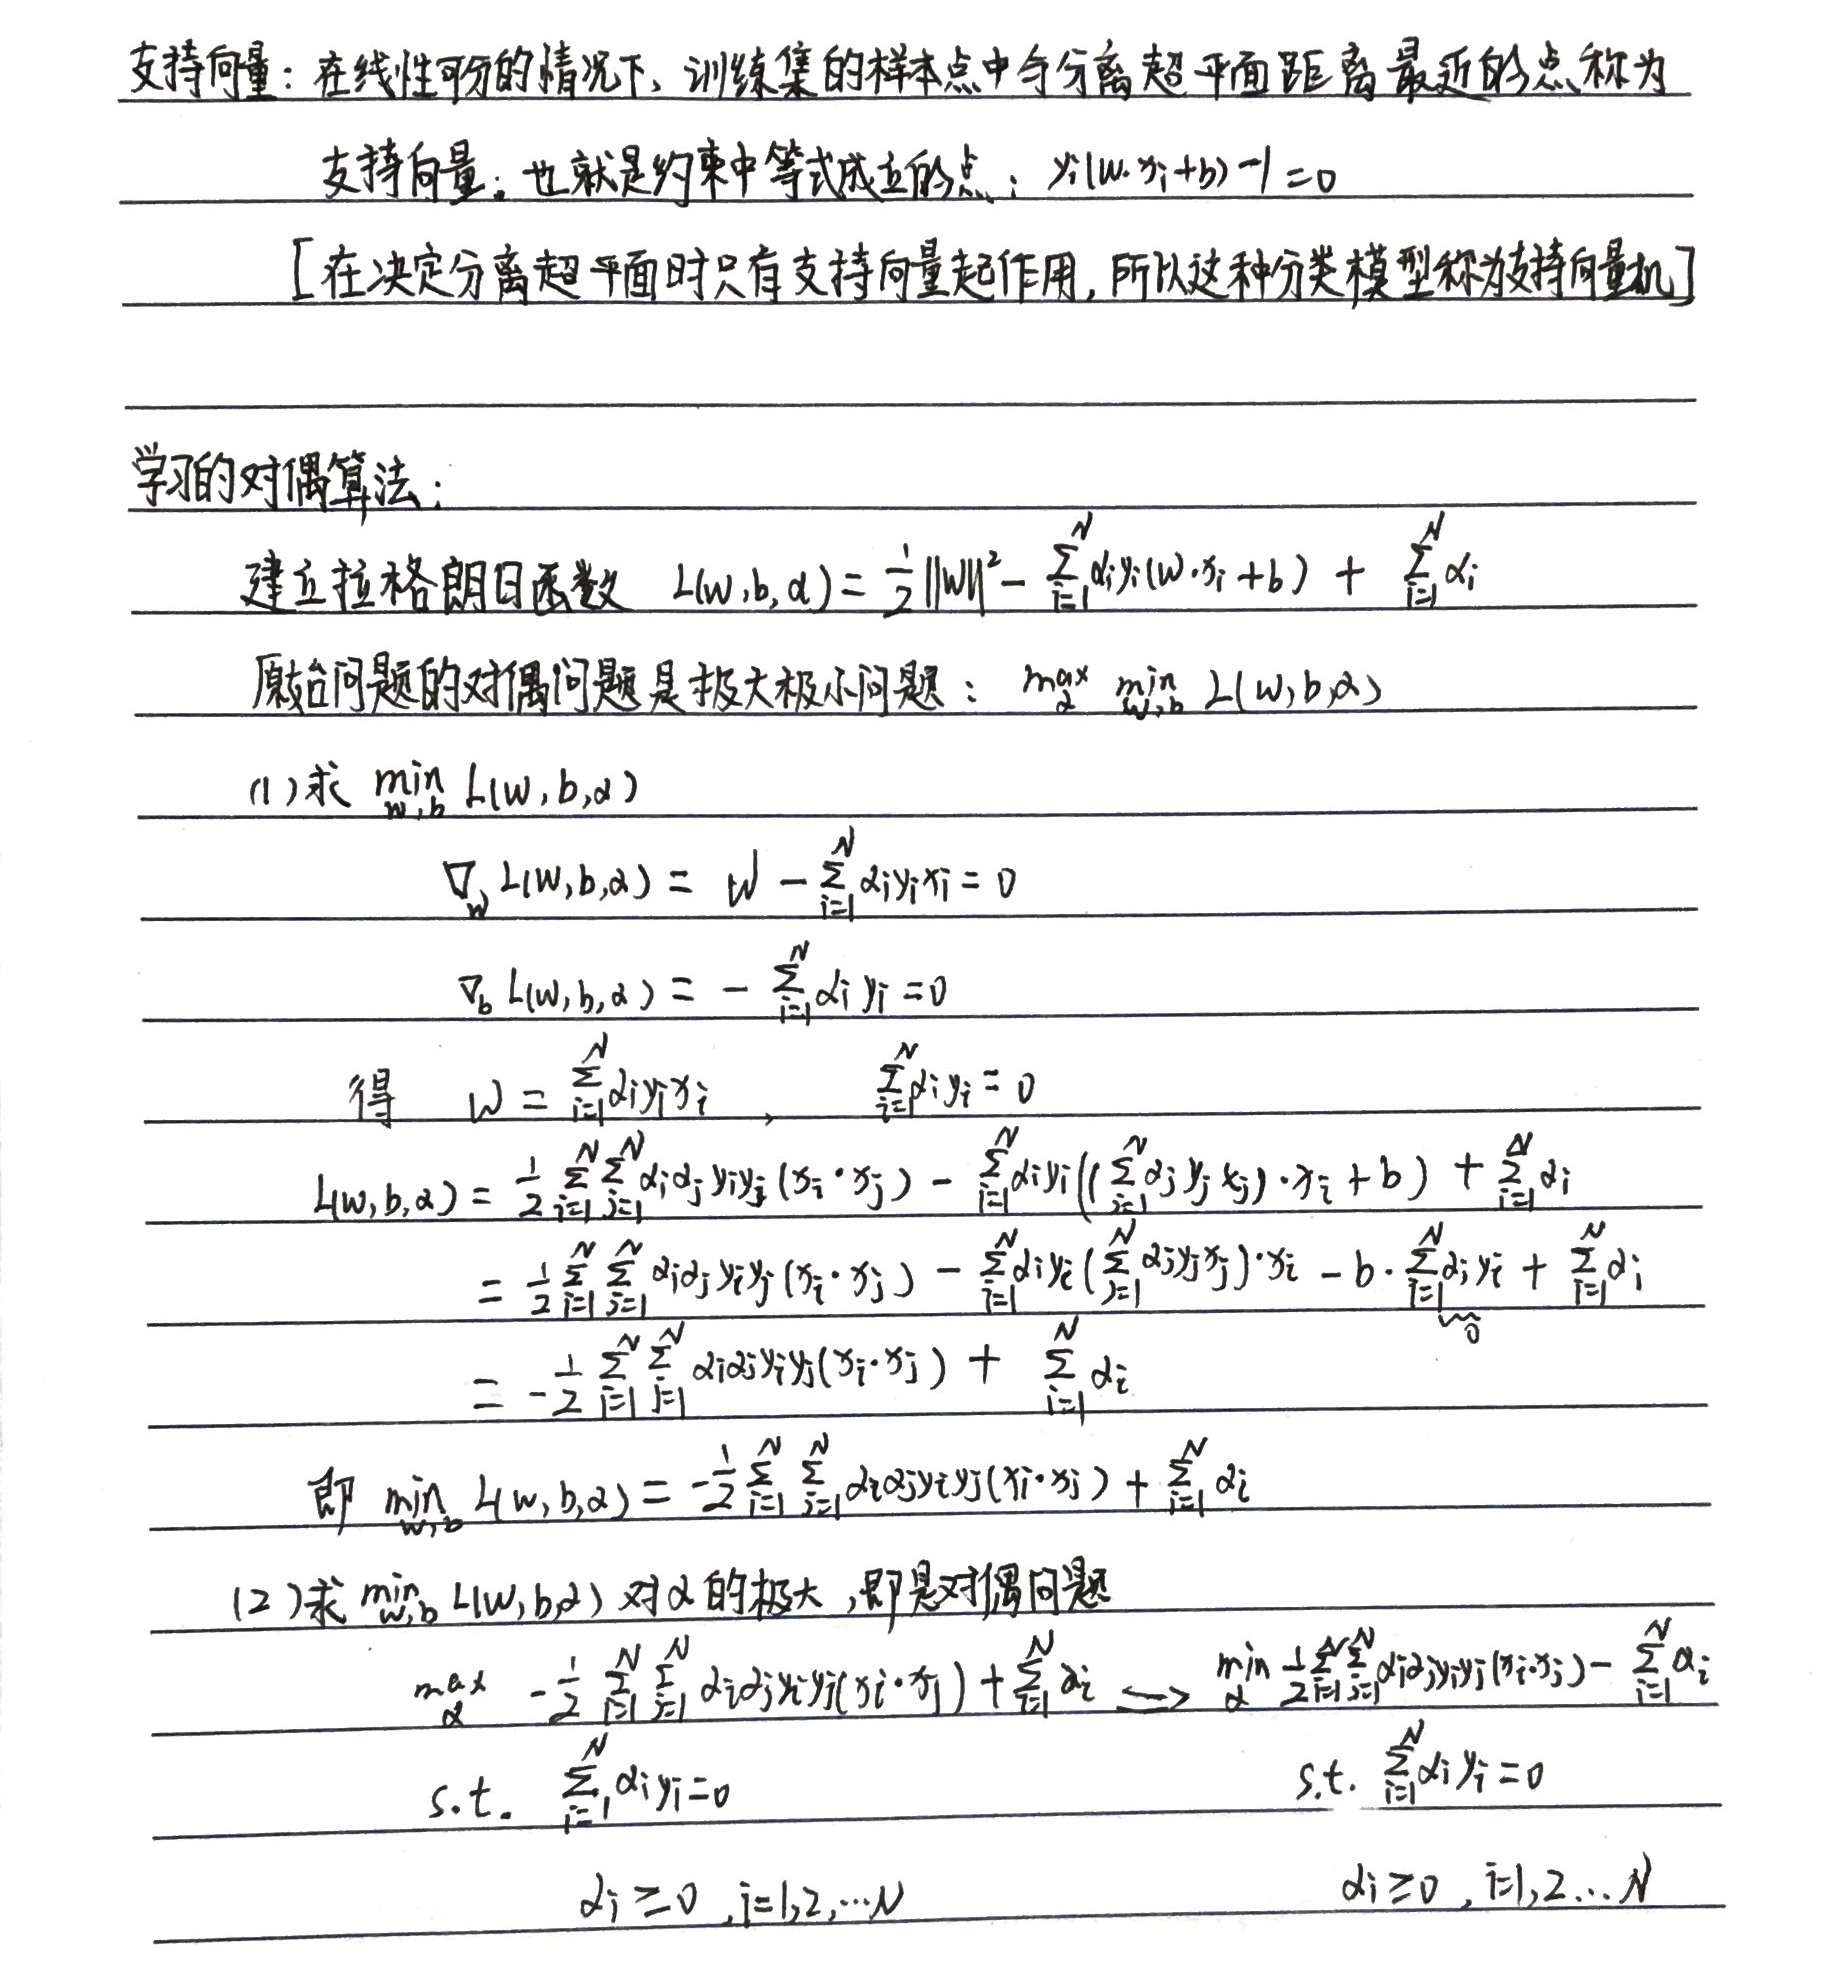 支持向量：在线性可分的情况下，训练集的样本点中与分离超平面距离最近的点称为
支持向量。也就是约束中等式成立的点：yᵢ(w·xᵢ+b)-1=0
[在决定分离超平面时只有支持向量起作用,所以这种分类模型称为支持向量机]
学习的对偶算法：
建立拉格朗日函数 L(w,b,α) = 1/2||W||² - ∑_{i=1}^{N} αᵢyᵢ(w·xᵢ+b) + ∑_{i=1}^{N} αᵢ
原始问题的对偶问题是极大极小问题： max_{α} min_{w,b} L(w,b,α)
(1)求 min_{w,b} L(w,b,α)
∇_w L(w,b,α) = w - ∑_{i=1}^{N} αᵢyᵢxᵢ = 0
∇_b L(w,b,α) = - ∑_{i=1}^{N} αᵢyᵢ = 0
得 w = ∑_{i=1}^{N} αᵢyᵢxᵢ , ∑_{i=1}^{N} αᵢyᵢ = 0
L(w,b,α) = 1/2 ∑_{i=1}^{N} ∑_{j=1}^{N} αᵢαⱼyᵢyⱼ(xᵢ·xⱼ) - ∑_{i=1}^{N} αᵢyᵢ((∑_{j=1}^{N} αⱼyⱼxⱼ)·xᵢ+b) + ∑_{i=1}^{N} αᵢ
= 1/2 ∑_{i=1}^{N} ∑_{j=1}^{N} αᵢαⱼyᵢyⱼ(xᵢ·xⱼ) - ∑_{i=1}^{N} αᵢyᵢ(∑_{j=1}^{N} αⱼyⱼxⱼ)·xᵢ - b·∑_{i=1}^{N} αᵢyᵢ + ∑_{i=1}^{N} αᵢ
0
= -1/2 ∑_{i=1}^{N} ∑_{j=1}^{N} αᵢαⱼyᵢyⱼ(xᵢ·xⱼ) + ∑_{i=1}^{N} αᵢ
即 min_{w,b} L(w,b,α) = -1/2 ∑_{i=1}^{N} ∑_{j=1}^{N} αᵢαⱼyᵢyⱼ(xᵢ·xⱼ) + ∑_{i=1}^{N} αᵢ
(2)求 min_{w,b} L(w,b,α) 对α的极大,即是对偶问题
max_{α} -1/2 ∑_{i=1}^{N} ∑_{j=1}^{N} αᵢαⱼyᵢyⱼ(xᵢ·xⱼ) + ∑_{i=1}^{N} αᵢ ⟺ min_{α} 1/2 ∑_{i=1}^{N} ∑_{j=1}^{N} αᵢαⱼyᵢyⱼ(xᵢ·xⱼ) - ∑_{i=1}^{N} αᵢ
s.t. ∑_{i=1}^{N} αᵢyᵢ=0 s.t. ∑_{i=1}^{N} αᵢyᵢ=0
αᵢ≥0,i=1,2,…N αᵢ≥0,i=1,2…N